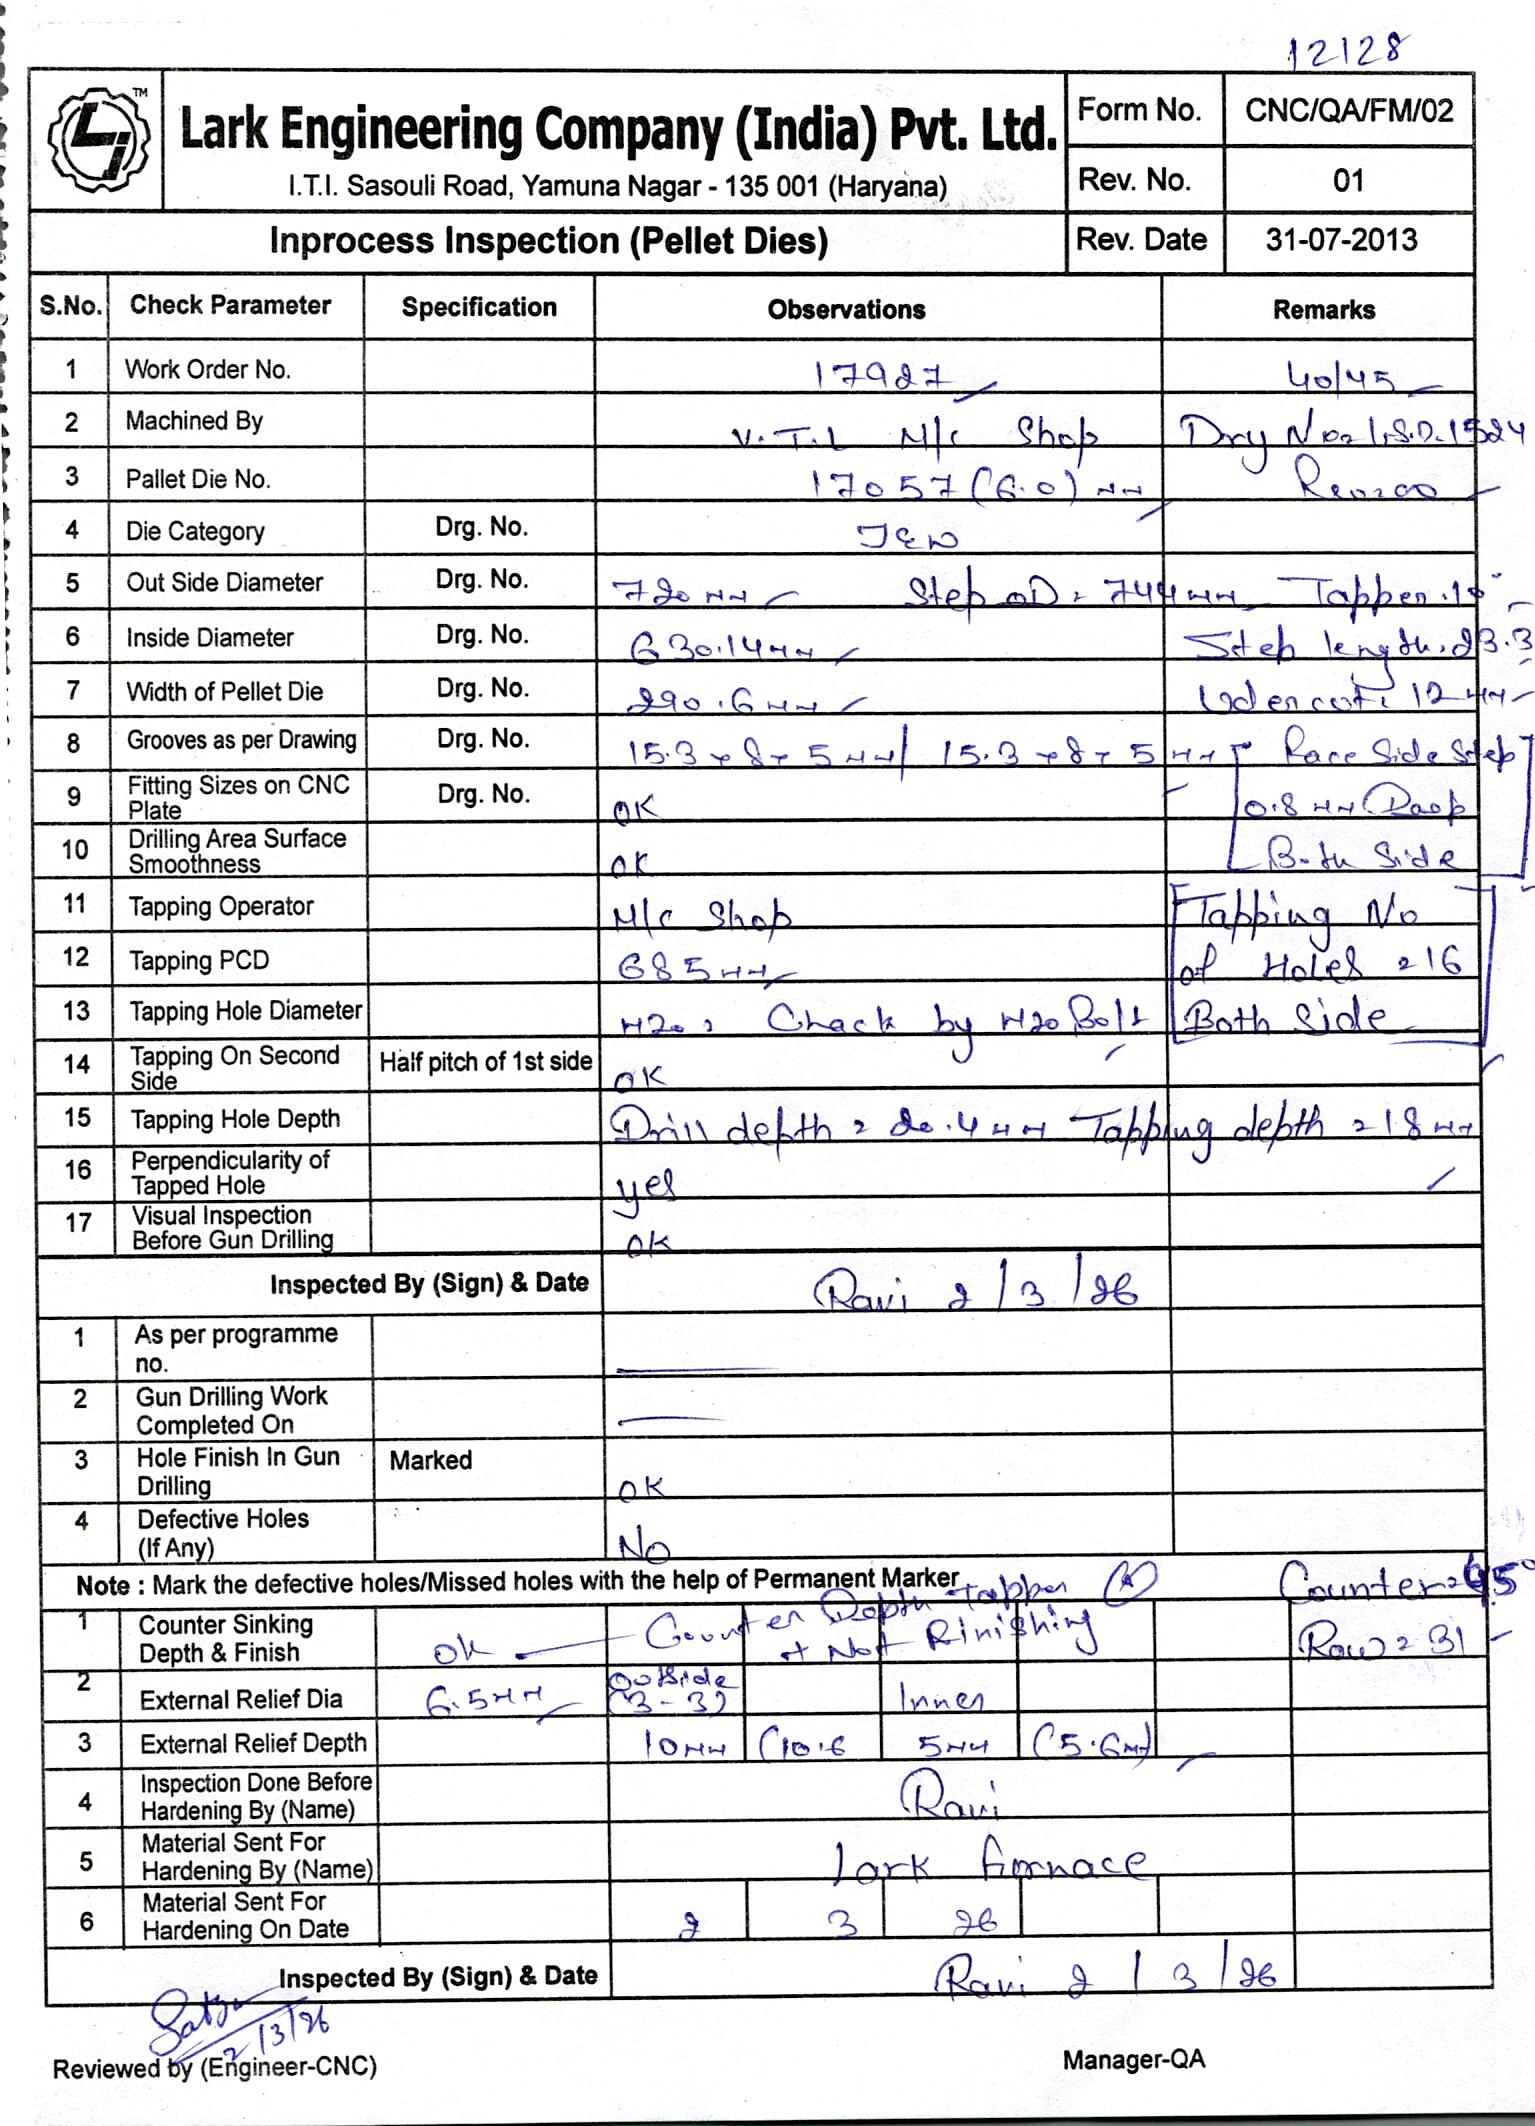 12128
TM
Lark Engineering Company (India) Pvt. Ltd.
I.T.I. Sasouli Road, Yamuna Nagar - 135 001 (Haryana)
Form No. CNC/QA/FM/02
Rev. No. 01
Inprocess Inspection (Pellet Dies) Rev. Date 31-07-2013
S.No. Check Parameter Specification Observations Remarks
1 Work Order No. 17927 40/45
2 Machined By V.T.L M/c Shop Drg No=
3 Pallet Die No. 17057 (6.0) mm Rev=00
4 Die Category Drg. No.
5 Out Side Diameter Drg. No. 720 mm Step OD = 744 mm Tapper
6 Inside Diameter Drg. No. 630.14 mm Step length = 23.3
7 Width of Pellet Die Drg. No. 290.6 mm 12 mm
8 Grooves as per Drawing Drg. No. 15.3 x 8 x 5 mm / 15.3 x 8 x 5 mm Side Step
9 Fitting Sizes on CNC Plate Drg. No. OK 0.8 mm
10 Drilling Area Surface Smoothness OK Both Side
11 Tapping Operator M/c Shop Tapping No
12 Tapping PCD 685 mm of Holes = 16
13 Tapping Hole Diameter M20 = Chack by M20 Bolt Both Side
14 Tapping On Second Side Half pitch of 1st side OK
15 Tapping Hole Depth Drill depth = 20.4 mm Tapping depth = 18 mm
16 Perpendicularity of Tapped Hole yes
17 Visual Inspection Before Gun Drilling OK
Inspected By (Sign) & Date Ravi 2/3/26
1 As per programme no.
2 Gun Drilling Work Completed On
3 Hole Finish In Gun Drilling Marked OK
4 Defective Holes (If Any) No
Note : Mark the defective holes/Missed holes with the help of Permanent Marker Counter=
1 Counter Sinking Depth & Finish OK Counter Depth Tapper Not Rinishing Row = 31
2 External Relief Dia 6.5 mm Outside (3-3) Inner
3 External Relief Depth 10 mm (10.6 5 mm (5.6 mm)
4 Inspection Done Before Hardening By (Name) Ravi
5 Material Sent For Hardening By (Name) Lark furnace
6 Material Sent For Hardening On Date 2 3 26
Inspected By (Sign) & Date Ravi 2/3/26
2/3/26
Reviewed by (Engineer-CNC) Manager-QA